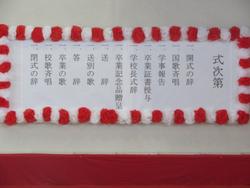 式次第
一 開式の辞
一 国歌斉唱
一 学事報告
一 卒業証書授与
一 学校長式辞
一 卒業記念品贈呈
一 送辞
一 送別の歌
一 答辞
一 卒業の歌
一 校歌斉唱
一 閉式の辞